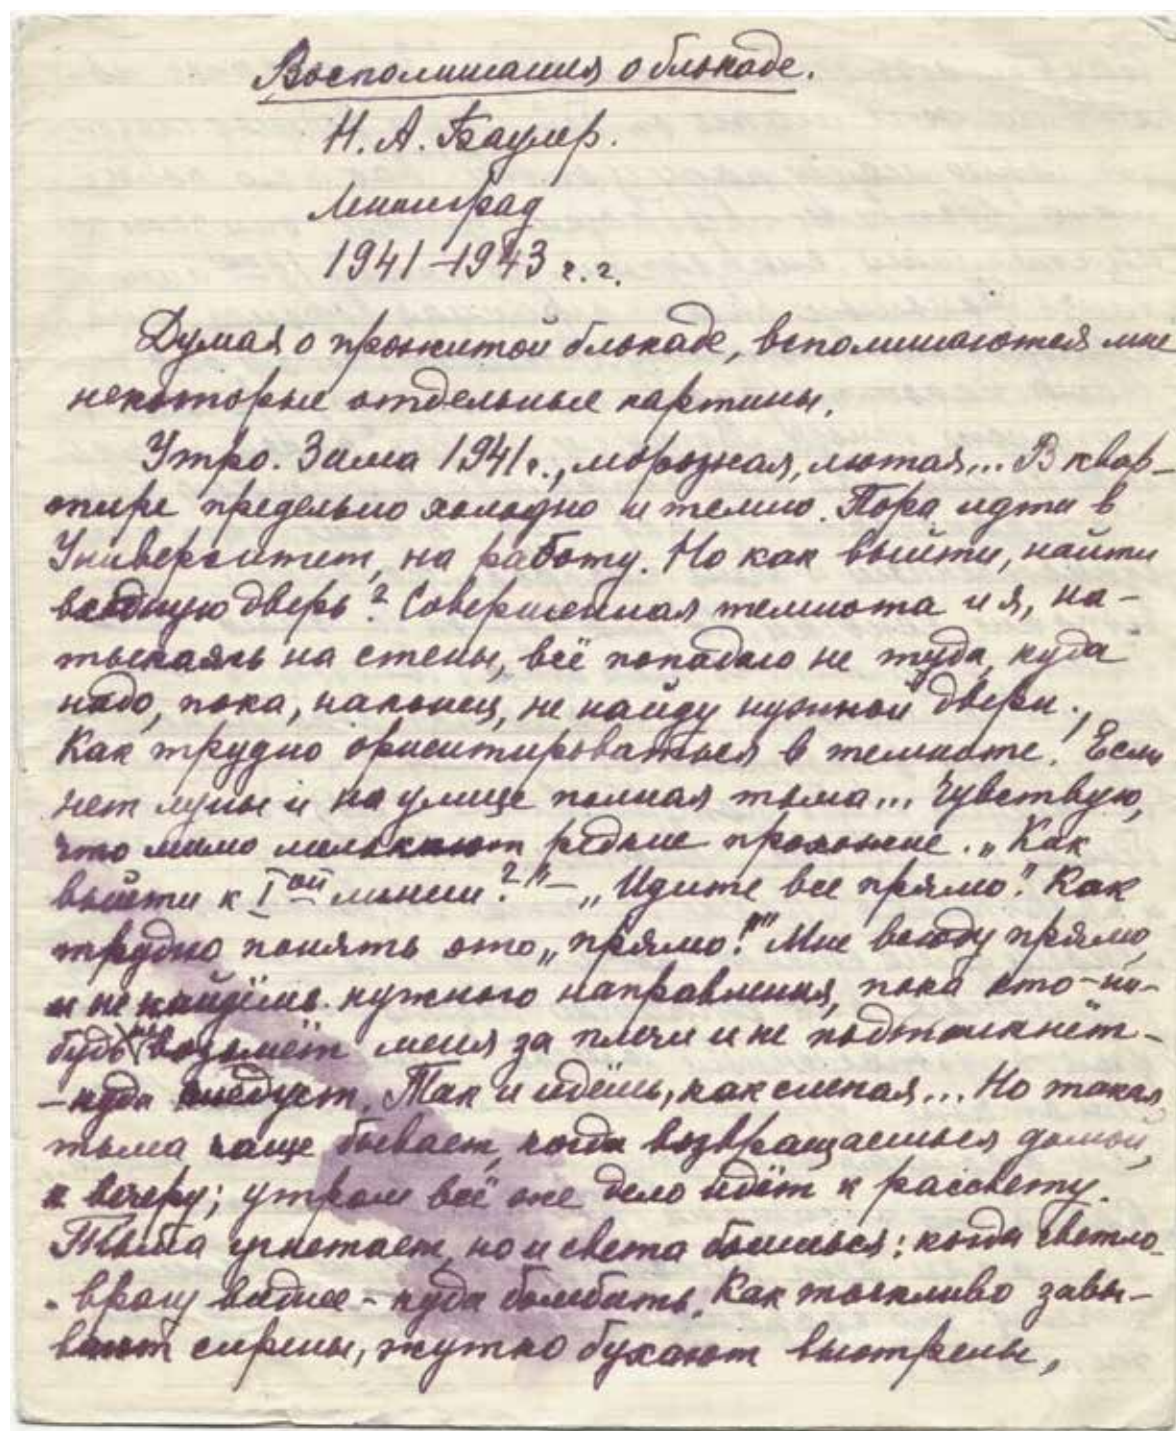 Воспоминания о блокаде.
Н. А. Баулер.
Ленинград
1941–1943 г. г.
Думая о прожитой блокаде, вспоминаются мне
некоторые отдельные картины.
Утро. Зима 1941 г., морозная, лютая... В квар-
тире предельно холодно и темно. Пора идти в
Университет, на работу. Но как выйти, найти
входную дверь? Совершенная темнота и я, на-
тыкаясь на стены, всё попадаю не туда, куда
надо, пока, наконец, не найду нужной двери.
Как трудно ориентироваться в темноте! Если
нет луны и на улице полная тьма... Чувствую,
что мимо мелькают редкие прохожие. „Как
выйти к I ой линии?" – „Идите все прямо". Как
трудно понять это „прямо!" Мне всюду прямо,
и не найдёшь нужного направления, пока кто-ни-
будь не возьмёт меня за плечи и не подтолкнёт –
– куда следует. Так и идёшь, как слепая... Но такая
тьма чаще бывает, когда возвращаешься домой,
к вечеру; утром всё же дело идёт к рассвету.
Тьма угнетает, но и света боишься: когда светло
- врагу виднее – куда бомбить. Как тоскливо завы-
вают сирены, жутко бухают выстрелы,